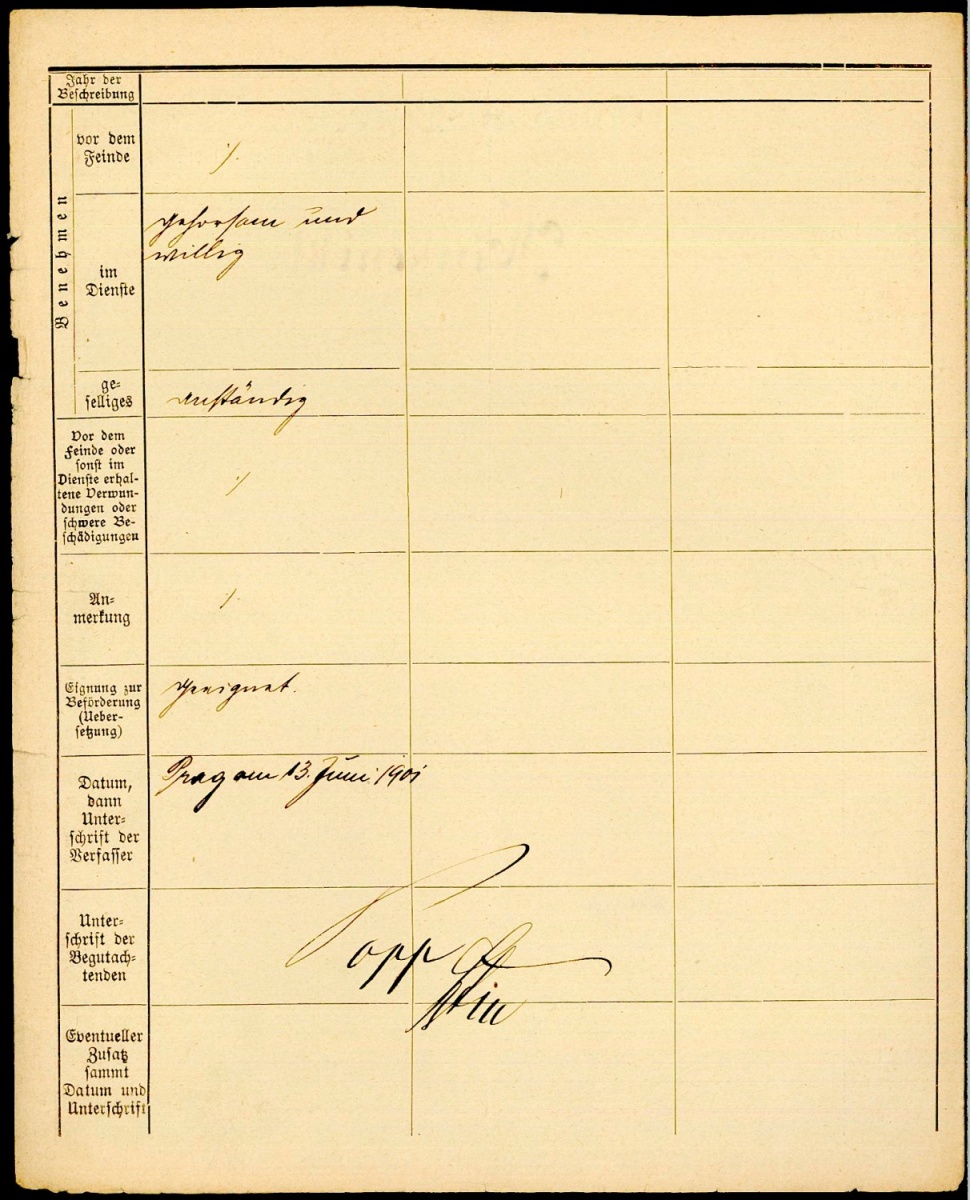 Jahr der
Beschreibung
Benehmen
vor dem
Feinde
./.
im
Dienste
gehorsam und
willig
ge-
selliges
anständig
Vor dem
Feinde oder
sonst im
Dienste erhal-
tene Verwun-
dungen oder
schwere Be-
schädigungen
./.
An-
merkung
./.
Eignung zur
Beförderung
(Ueber-
setzung)
geeignet.
Datum,
dann
Unter-
schrift der
Verfasser
Prag am 13. Juni 1901
Unter-
schrift der
Begutach-
tenden
Popp
Eventueller
Zusatz
sammt
Datum und
Unterschrift